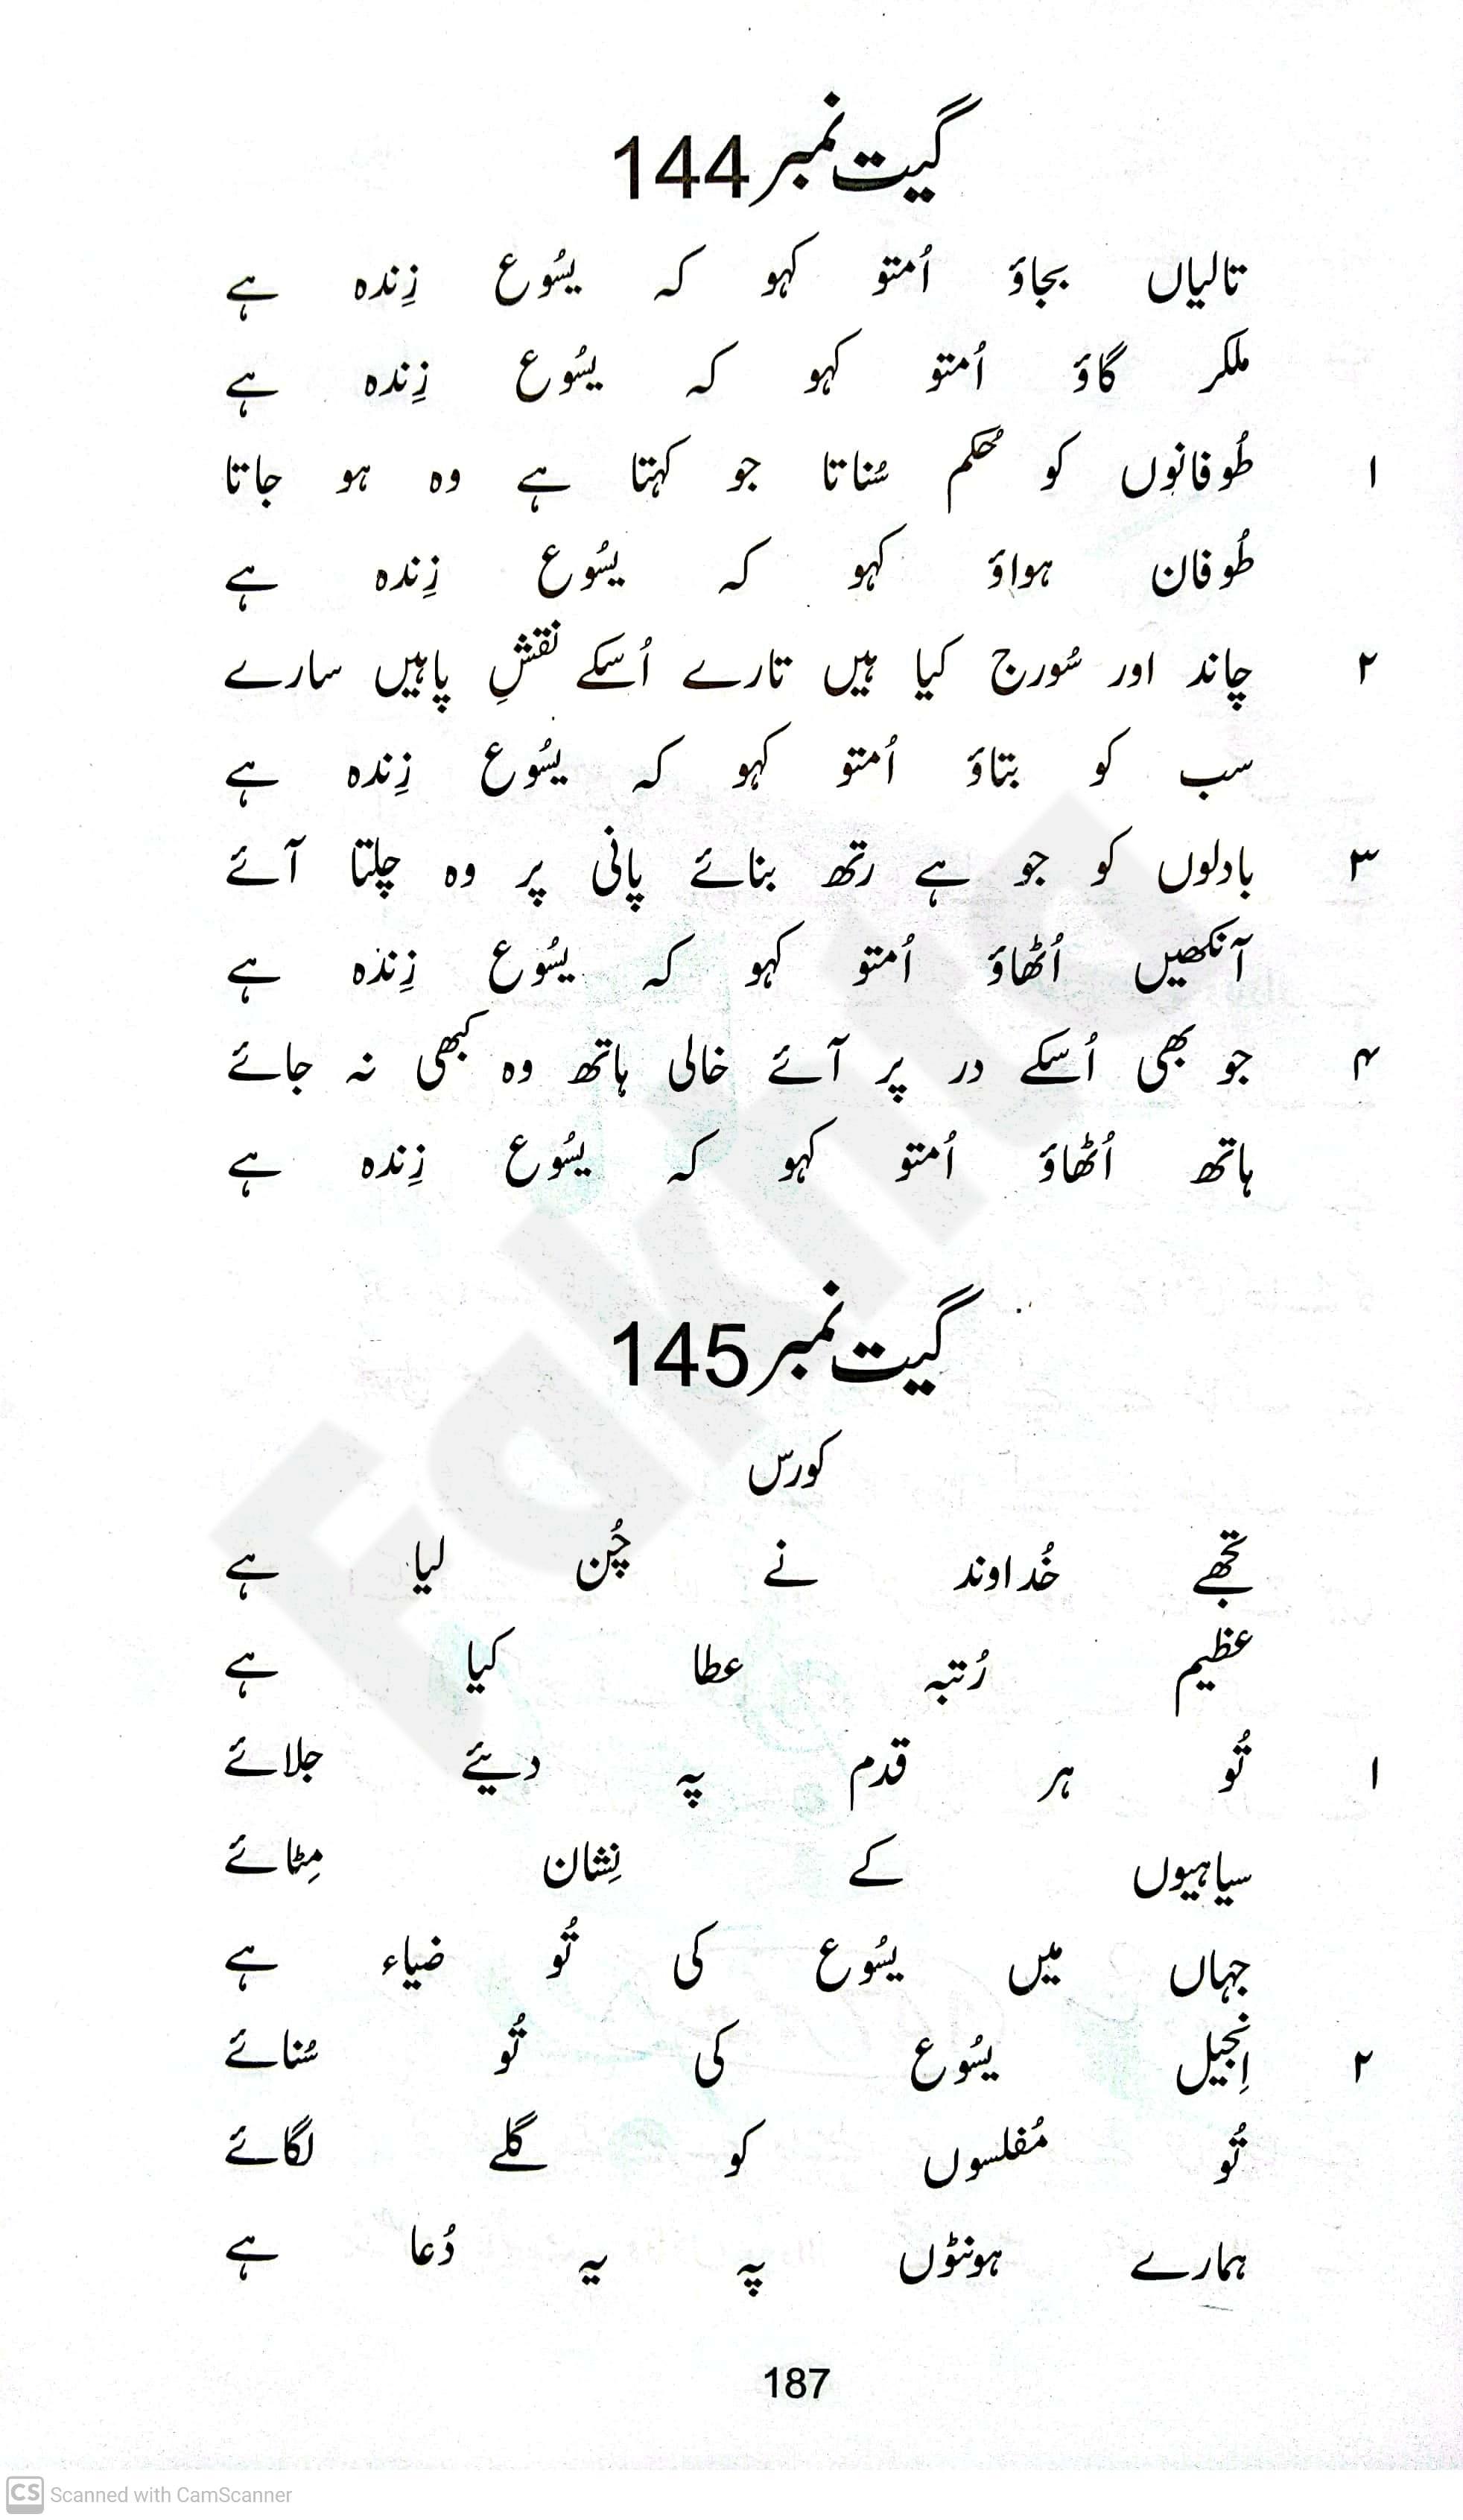 گیت نمبر 144
تالیاں بجاؤ اُمتو کہو کہ یسُوع زِندہ ہے
ملکر گاؤ اُمتو کہو کہ یسُوع زِندہ ہے
۱ طُوفانوں کو حُکم سُناتا جو کہتا ہے وہ ہو جاتا
طُوفان ہواؤ کہو کہ یسُوع زِندہ ہے
۲ چاند اور سُورج کیا ہیں تارے اُسکے نقشِ پاہیں سارے
سب کو بتاؤ اُمتو کہو کہ یسُوع زِندہ ہے
۳ بادلوں کو جو ہے رتھ بنائے پانی پر وہ چلتا آئے
آنکھیں اُٹھاؤ اُمتو کہو کہ یسُوع زِندہ ہے
۴ جو بھی اُسکے در پر آئے خالی ہاتھ وہ کبھی نہ جائے
ہاتھ اُٹھاؤ اُمتو کہو کہ یسُوع زِندہ ہے
گیت نمبر 145
کورس
تجھے خُداوند نے چُن لیا ہے
عظیم رُتبہ عطا کیا ہے
۱ تُو ہر قدم پہ دیئے جلائے
سیاہیوں کے نِشان مِٹائے
جہاں میں یسُوع کی تُو ضیاء ہے
۲ اِنجیل یسُوع کی تُو سُنائے
تُو مُفلسوں کو گلے لگائے
ہمارے ہونٹوں پہ یہ دُعا ہے
187
CS Scanned with CamScanner